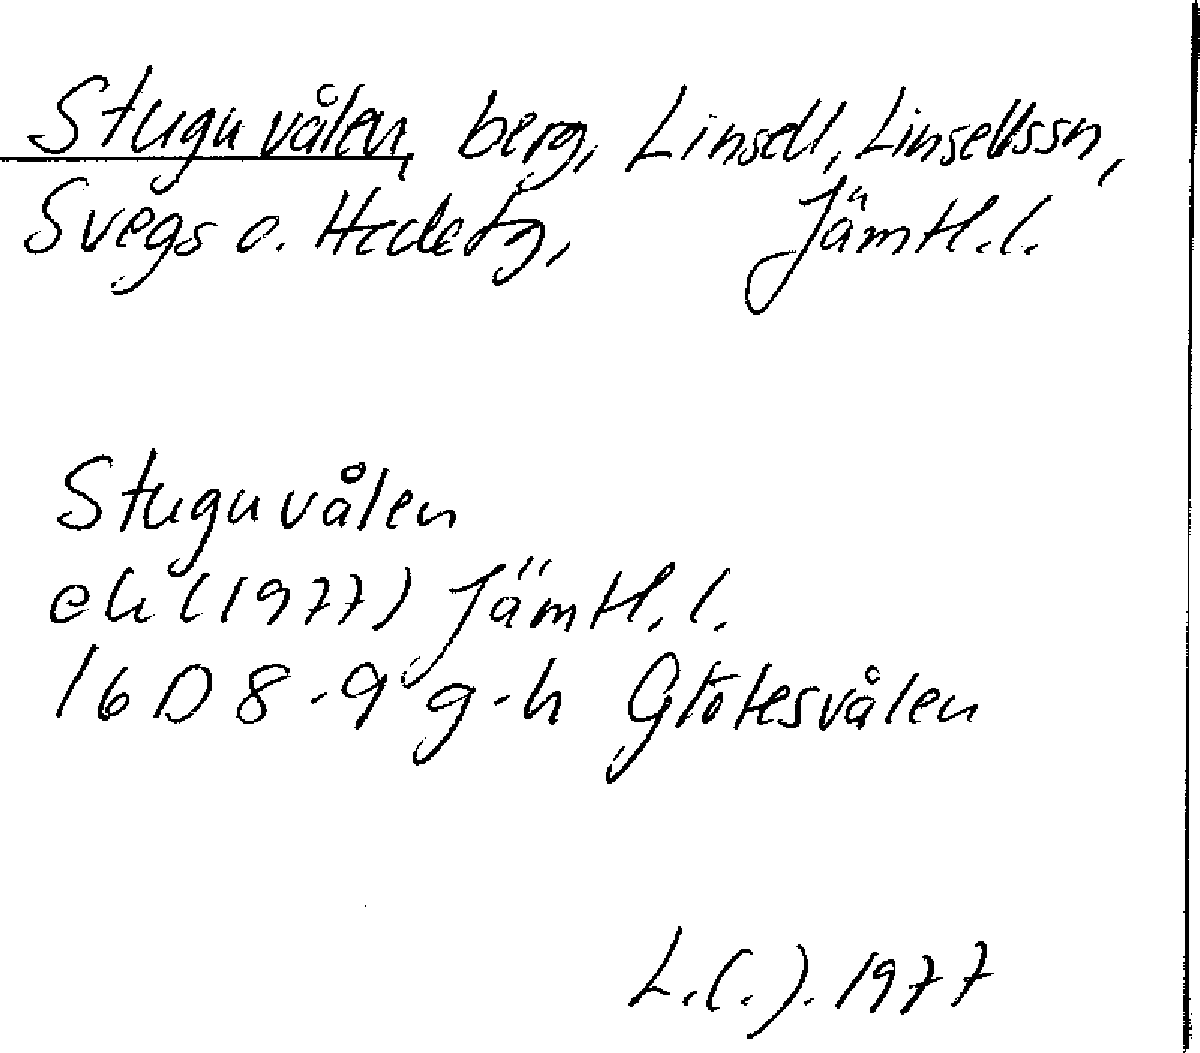 Stuguvålen, berg, Linsell, Linsellssn,
Svegs o. Hedetg, Jämtl.l.
Stuguvålen
ek (1977) Jämtl.l.
16D 8-9 g-h Glötesvålen
L.(.). 1977